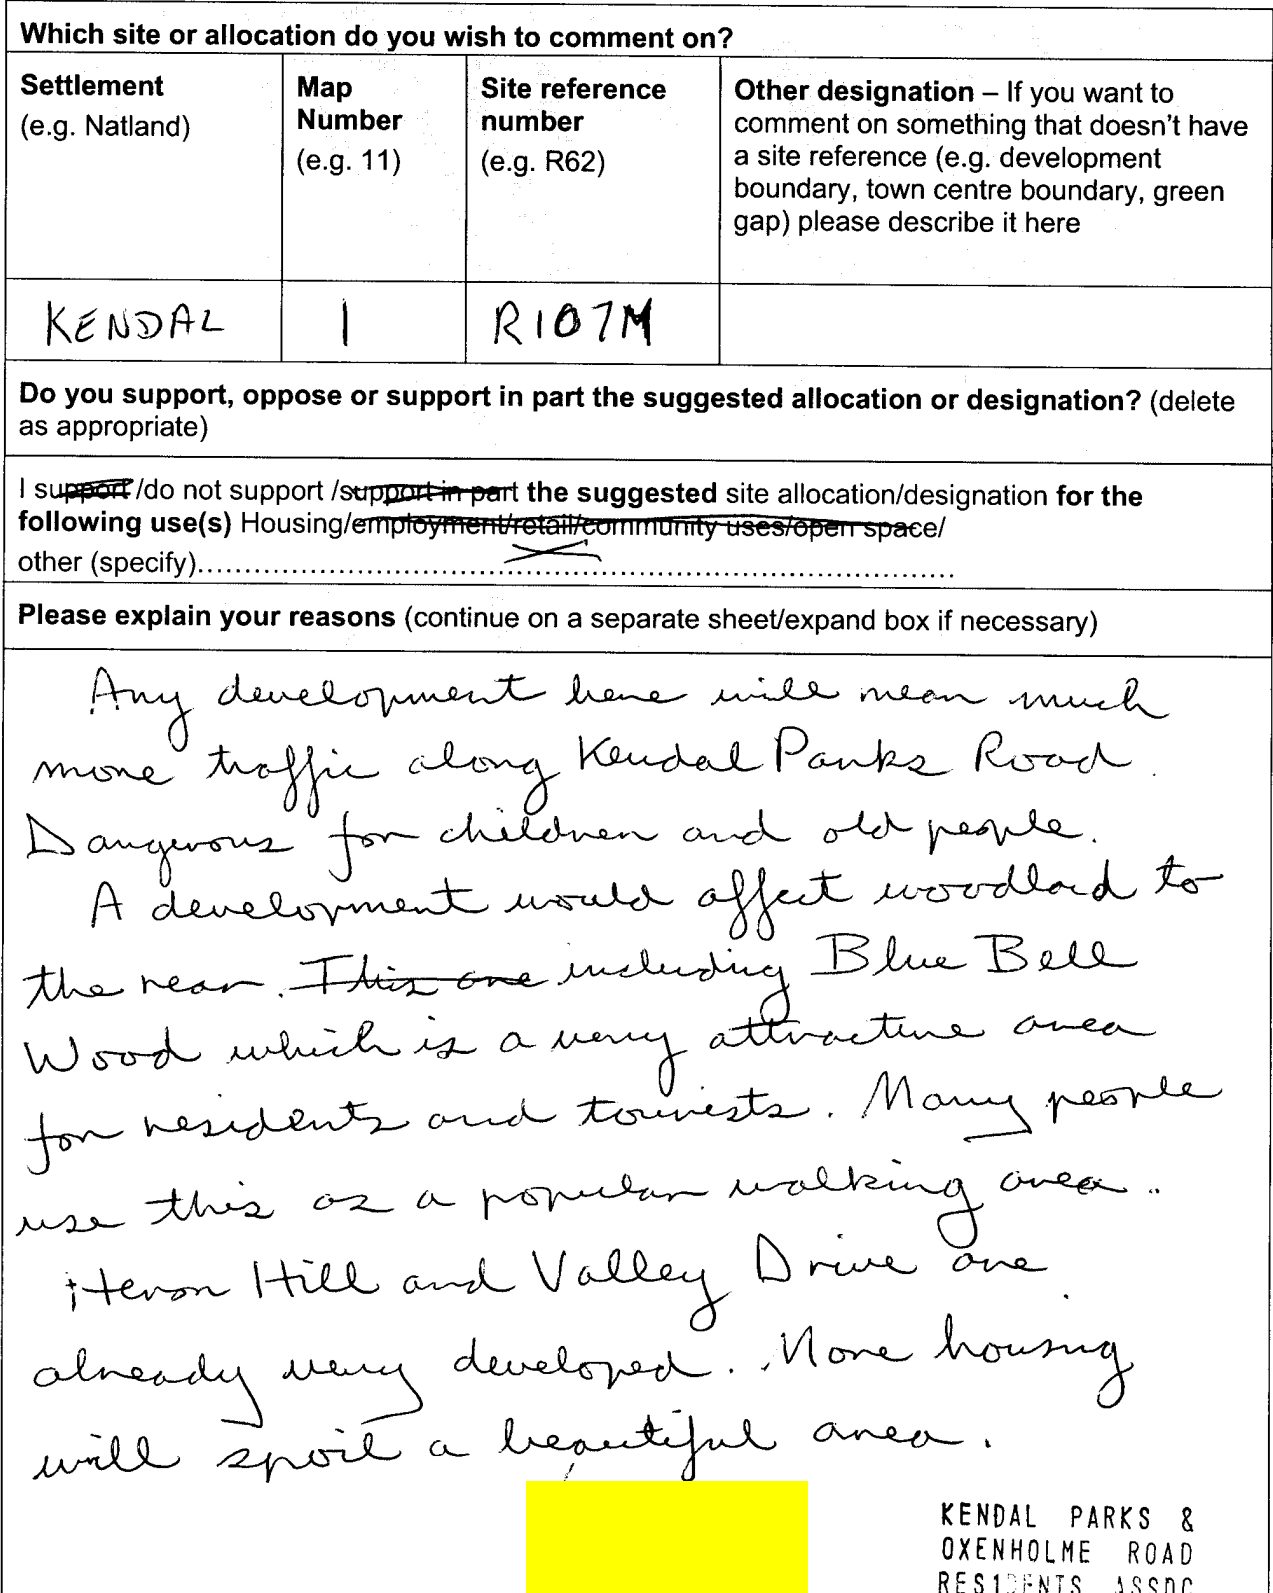 Which site or allocation do you wish to comment on?
Settlement
(e.g. Natland)
Map
Number
(e.g. 11)
Site reference
number
(e.g. R62)
Other designation – If you want to
comment on something that doesn't have
a site reference (e.g. development
boundary, town centre boundary, green
gap) please describe it here
KENDAL
1
R107M
Do you support, oppose or support in part the suggested allocation or designation? (delete
as appropriate)
I support/do not support /support in part the suggested site allocation/designation for the
following use(s) Housing/employment/retail/community uses/open space/
other (specify)........................................................................................
Please explain your reasons (continue on a separate sheet/expand box if necessary)
Any development here will mean much
more traffic along Kendal Parks Road.
Dangerous for children and old people.
A development would affect woodlad to
the rear. This are including Blue Bell
Wood which is a very attractive area
for residents and tourists. Many people
use this as a popular walking area..
Heron Hill and Valley Drive are
already very developed. More housing
will spoil a beautiful area.
KENDAL PARKS &
OXENHOLME ROAD
RESIDENTS ASSOC